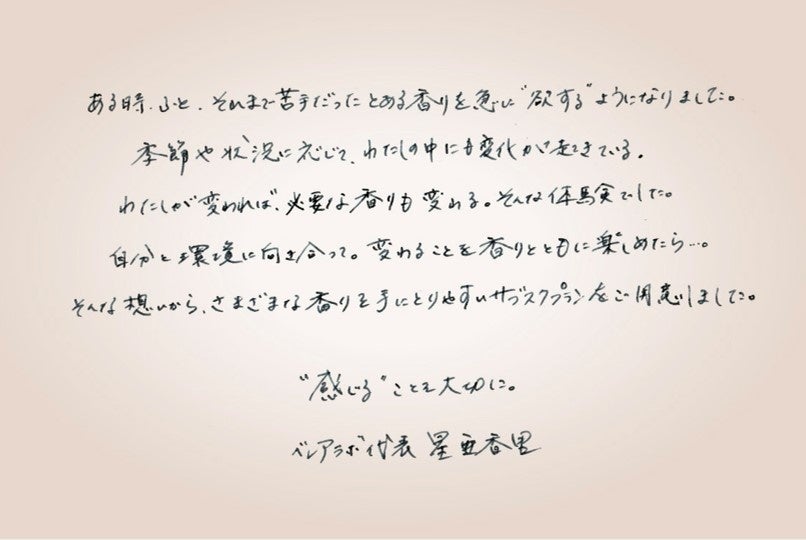 ある時、ふと、それまで苦手だったとある香りを急に"欲する"ようになりました。
季節や状況に応じて、わたしの中にも変化が起きている。
わたしが変われば、必要な香りも変わる。そんな体験でした。
自分と環境に向き合って。変わることを香りとともに楽しめたら…。
そんな想いから、さまざまな香りを手にとりやすいサブスクプランをご用意しました。
"感じる"ことを大切に。
ベレアラボ代表 星亜香里